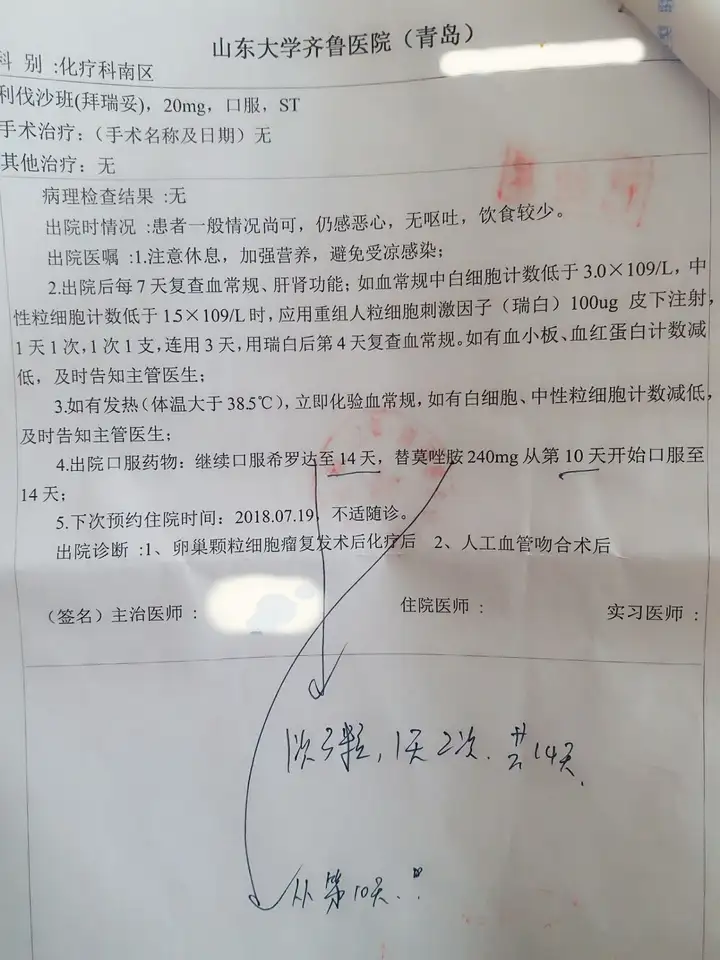 山东大学齐鲁医院（青岛）
科 别 :化疗科南区
利伐沙班(拜瑞妥)，20mg，口服，ST
手术治疗：（手术名称及日期）无
其他治疗：无
病理检查结果 :无
出院时情况 :患者一般情况尚可，仍感恶心，无呕吐，饮食较少。
出院医嘱 :1.注意休息，加强营养，避免受凉感染；
2.出院后每 7 天复查血常规、肝肾功能；如血常规中白细胞计数低于 3.0×109/L，中
性粒细胞计数低于 1.5×109/L 时，应用重组人粒细胞刺激因子（瑞白）100ug 皮下注射，
1 天 1 次，1 次 1 支，连用 3 天，用瑞白后第 4 天复查血常规。如有血小板、血红蛋白计数减
低，及时告知主管医生；
3.如有发热（体温大于 38.5℃），立即化验血常规，如有白细胞、中性粒细胞计数减低，
及时告知主管医生；
4.出院口服药物：继续口服希罗达至 14 天，替莫唑胺 240mg 从第 10 天开始口服至
14 天；
5.下次预约住院时间：2018.07.19 不适随诊。
出院诊断 :1、卵巢颗粒细胞瘤复发术后化疗后 2、人工血管吻合术后
（签名）主治医师： 住院医师： 实习医师：
1次3颗，1天2次．共14天．
从第10天．